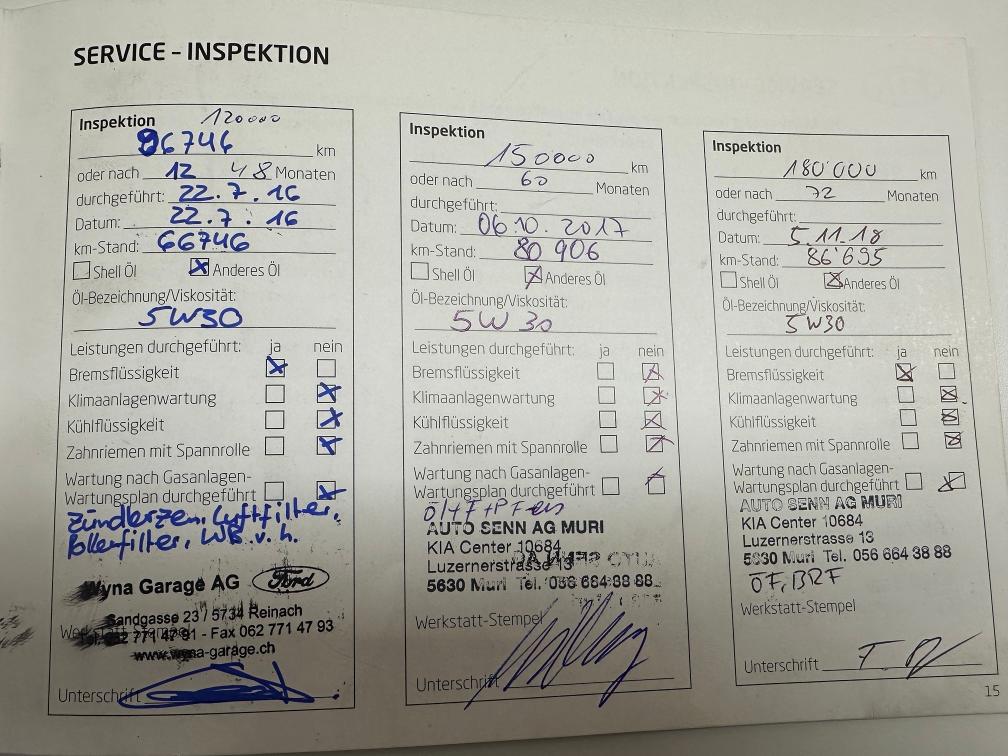 SERVICE – INSPEKTION
Inspektion 120000
96746 km
oder nach 12 48 Monaten
durchgeführt: 22.7.16
Datum: 22.7.16
km-Stand: 66746
Shell Öl Anderes Öl
Öl-Bezeichnung/Viskosität:
5W30
Leistungen durchgeführt: ja nein
Bremsflüssigkeit
Klimaanlagenwartung
Kühlflüssigkeit
Zahnriemen mit Spannrolle
Wartung nach Gasanlagen-
Wartungsplan durchgeführt
Zündkerzen, Luftfilter,
Pollenfilter, WB v. h.
Wyna Garage AG Ford
Sandgasse 23 / 5734 Reinach
Werkstatt-Stempel
Tel. 062 771 47 91 - Fax 062 771 47 93
www.wyna-garage.ch
Unterschrift
Inspektion
150000 km
oder nach 60 Monaten
durchgeführt:
Datum: 06.10.2017
km-Stand: 80 906
Shell Öl Anderes Öl
Öl-Bezeichnung/Viskosität:
5W30
Leistungen durchgeführt: ja nein
Bremsflüssigkeit
Klimaanlagenwartung
Kühlflüssigkeit
Zahnriemen mit Spannrolle
Wartung nach Gasanlagen-
Wartungsplan durchgeführt
AUTO SENN AG MURI
KIA Center 10684
Luzernerstrasse 13
5630 Muri Tel. 056 664 38 88
Werkstatt-Stempel
Unterschrift
Inspektion
180'000 km
oder nach 72 Monaten
durchgeführt:
Datum: 5.11.18
km-Stand: 86'695
Shell Öl Anderes Öl
Öl-Bezeichnung/Viskosität:
5W30
Leistungen durchgeführt: ja nein
Bremsflüssigkeit
Klimaanlagenwartung
Kühlflüssigkeit
Zahnriemen mit Spannrolle
Wartung nach Gasanlagen-
Wartungsplan durchgeführt
AUTO SENN AG MURI
KIA Center 10684
Luzernerstrasse 13
5630 Muri Tel. 056 664 38 88
ÖF, BRF
Werkstatt-Stempel
Unterschrift
15